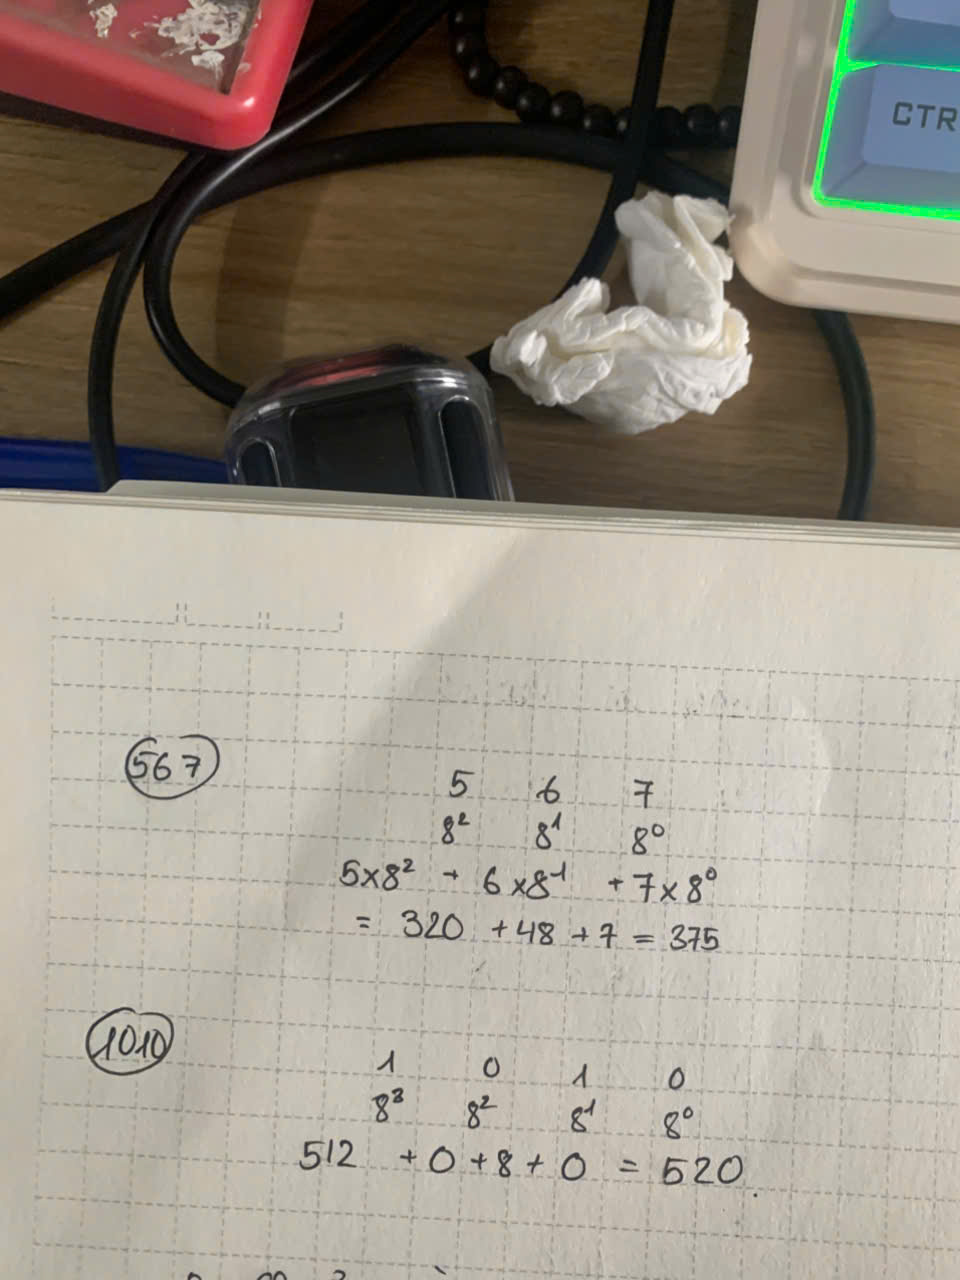 CTR
567
5 6 7
8² 8¹ 8⁰
5x8² + 6x8¹ + 7x8⁰
= 320 + 48 + 7 = 375
1010
1 0 1 0
8³ 8² 8¹ 8⁰
512 + 0 + 8 + 0 = 520.